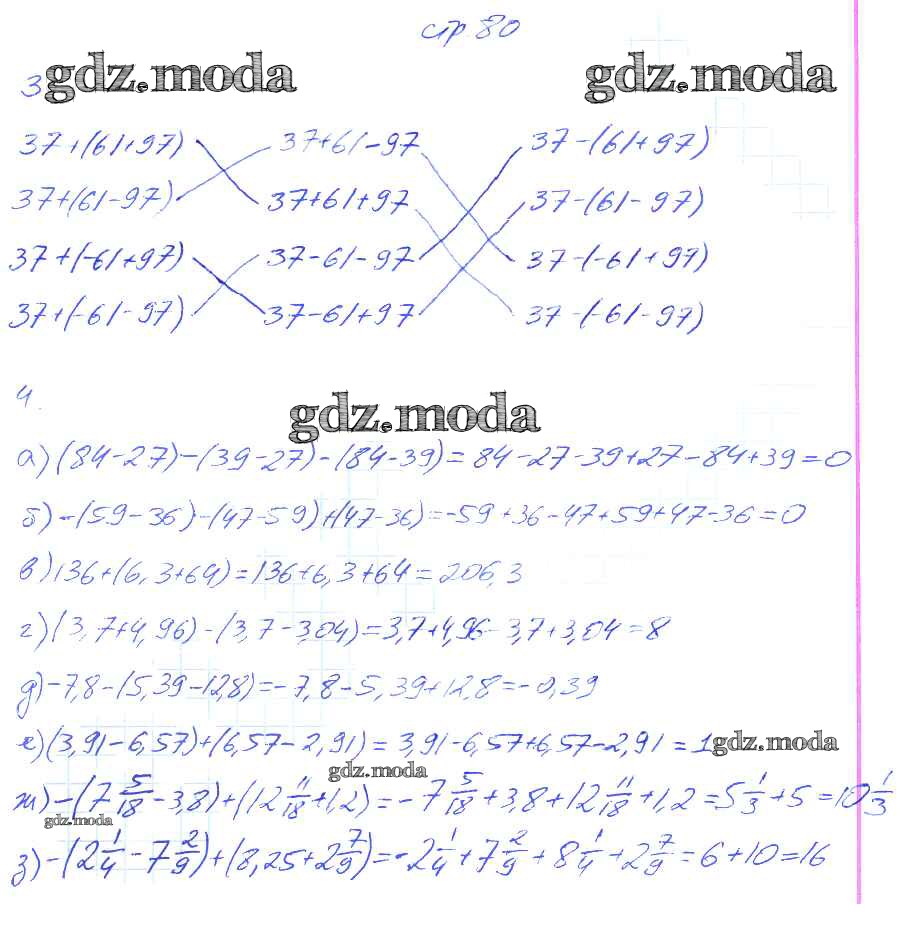 стр 80
3 gdz.moda gdz.moda
37+(61+97) 37+61-97 37-(61+97)
37+(61-97) 37+61+97 37-(61-97)
37+(-61+97) 37-61-97 37-(-61+97)
37+(-61-97) 37-61+97 37-(-61-97)
4.
gdz.moda
а) (84-27)-(39-27)-(84-39)=84-27-39+27-84+39=0
б) -(59-36)-(47-59)+(47-36)=-59+36-47+59+47-36=0
в) 136+(6,3+64)=136+6,3+64=206,3
г) (3,7+4,96)-(3,7-3,04)=3,7+4,96-3,7+3,04=8
д) -7,8-(5,39-12,8)=-7,8-5,39+12,8=-0,39
е) (3,91-6,57)+(6,57-2,91)=3,91-6,57+6,57-2,91=1 gdz.moda
gdz.moda
ж) -(7 5/18-3,8)+(12 11/18+1,2)=-7 5/18+3,8+12 11/18+1,2=5 1/3+5=10 1/3
gdz.moda
з) -(2 1/4-7 2/9)+(8,25+2 7/9)=-2 1/4+7 2/9+8 1/4+2 7/9=6+10=16